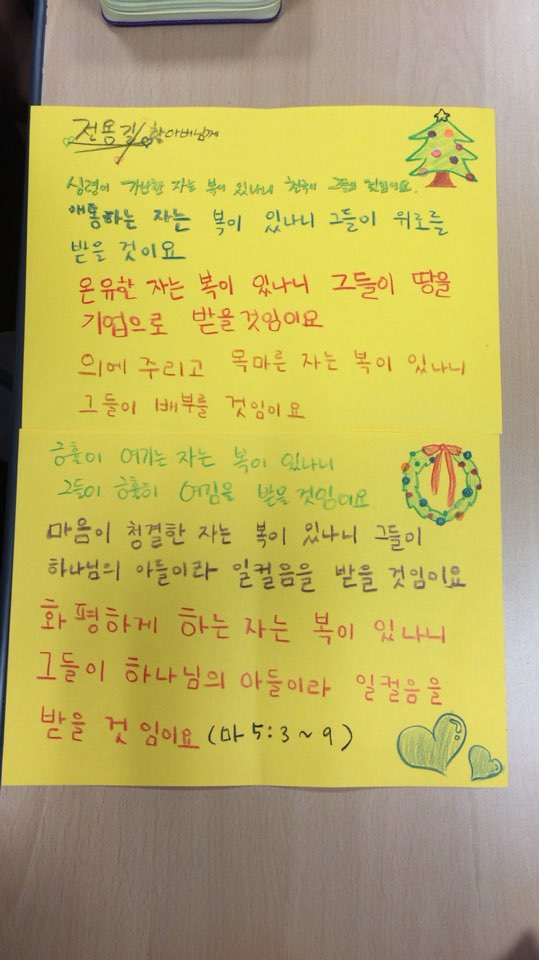 전용길 할아버님께
심령이 가난한 자는 복이 있나니 천국이 그들의 것임이요.
애통하는 자는 복이 있나니 그들이 위로를
받을 것이요
온유한 자는 복이 있나니 그들이 땅을
기업으로 받을것임이요
의에 주리고 목마른 자는 복이 있나니
그들이 배부를 것임이요
긍휼이 여기는 자는 복이 있나니
그들이 긍휼히 여김을 받을 것임이요.
마음이 청결한 자는 복이 있나니 그들이
하나님의 아들이라 일컬음을 받을 것임이요
화평하게 하는 자는 복이 있나니
그들이 하나님의 아들이라 일컬음을
받을 것 임이요 (마 5:3~9)